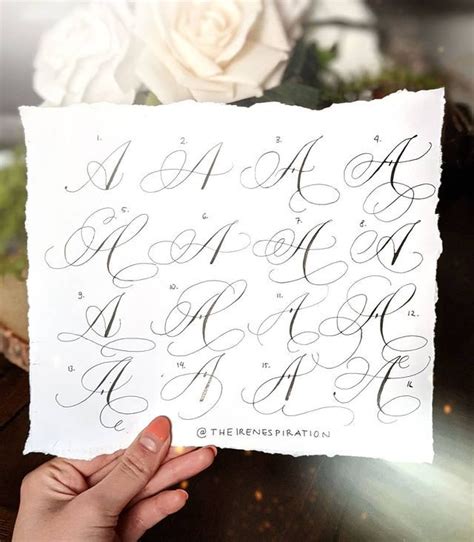 1. A 2. A 3. A 4. A
5. A 6. A 7. A 8. A
9. A 10. A 11. A 12. A
13. A 14. A 15. A 16. A
@THEIRENESPIRATION